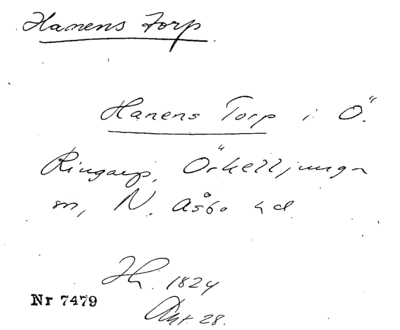 Hanens Torp
Hanens Torp i Ö.
Ringarp, Örkelljunga
sn, N. Åsbo hd
Hr. 1824
Akt 28.
Nr 7479